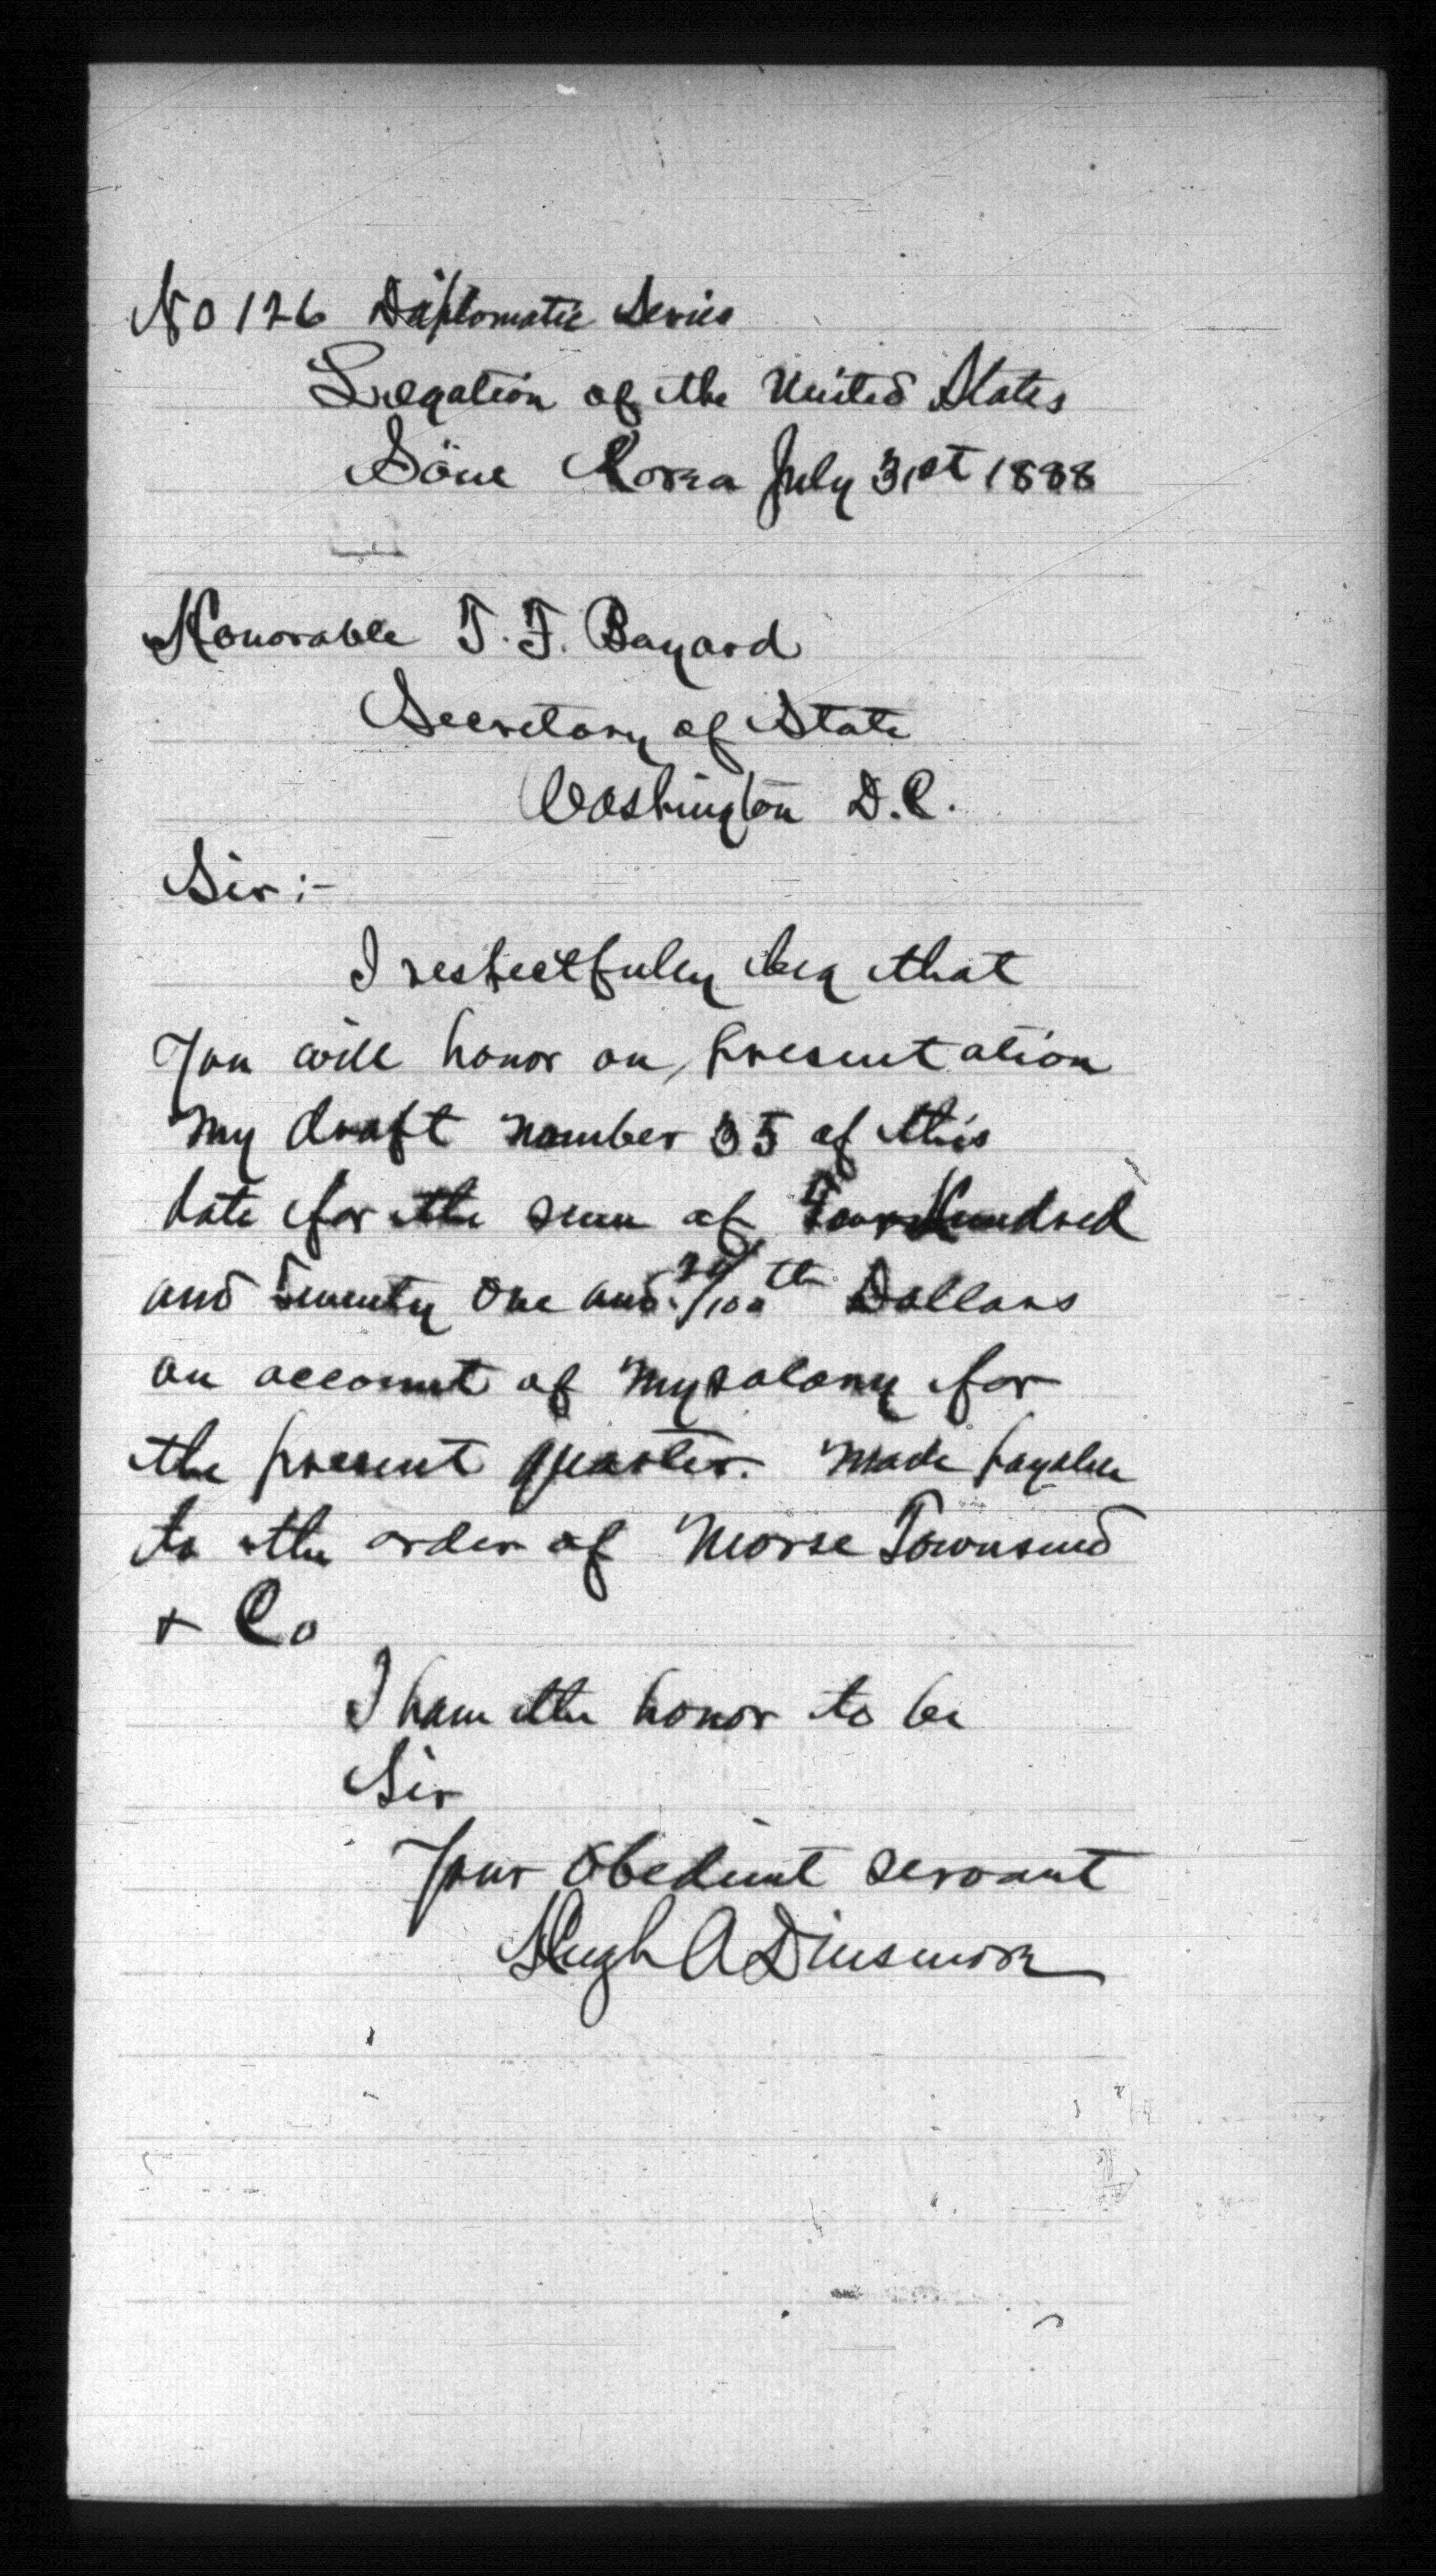 No 126 Diplomatic Series
Legation of the United States
Söul Korea July 31st 1888
Honorable T. F. Bayard
Secretary of State
Washington D.C.
Sir:-
I respectfully beg that
You will honor on presentation
my draft number 35 of this
date for the sum of Four Hundred
and Seventy One and /100th Dollars
on account of my salary for
the present quarter. Made payable
to the order of Morse Townsend
+ Co
I have the honor to be
Sir
Your Obedient servant
Hugh A Dinsmore